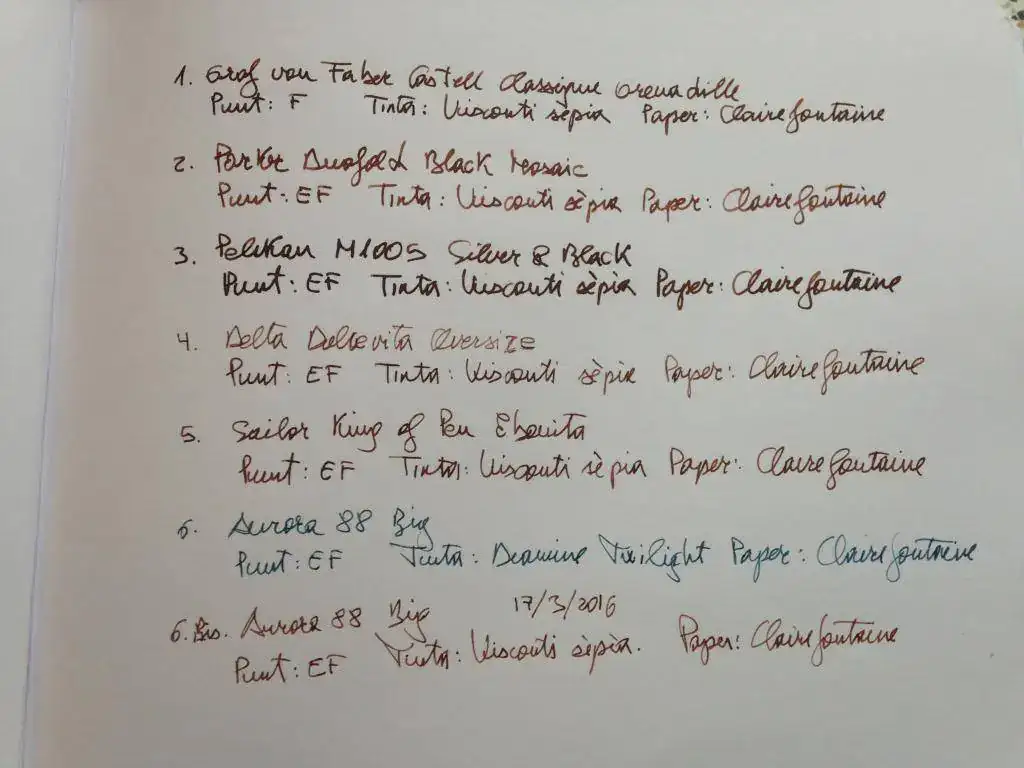 1. Graf von Faber Castell Classique Grenadille
Punt: F Tinta: Visconti sèpia Paper: Clairefontaine
2. Parker Duofold Black Mosaic
Punt: EF Tinta: Visconti sèpia Paper: Clairefontaine
3. Pelikan M1005 Silver & Black
Punt: EF Tinta: Visconti sèpia Paper: Clairefontaine
4. Delta Dolcevita Oversize
Punt: EF Tinta: Visconti sèpia Paper: Clairefontaine
5. Sailor King of Pen Ebonita
Punt: EF Tinta: Visconti sèpia Paper: Clairefontaine
6. Aurora 88 Big
Punt: EF Tinta: Diamine Twilight Paper: Clairefontaine
6. Bis. Aurora 88 Big 17/3/2016
Punt: EF Tinta: Visconti sèpia. Paper: Clairefontaine